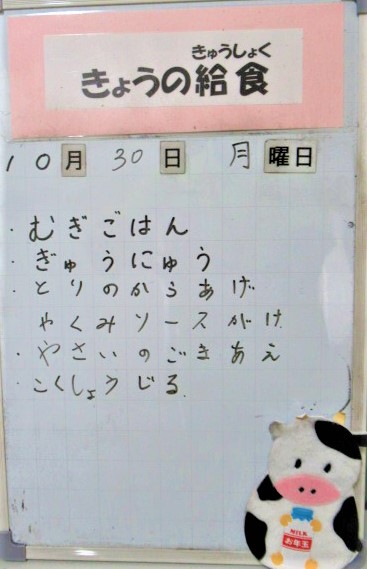 きゅうしょく
きょうの給食
10月 30日 月曜日
・むぎごはん
・ぎゅうにゅう
・とりのからあげ
やくみソースがけ
・やさいのごまあえ
・こくしょうじる
MILK
お年玉